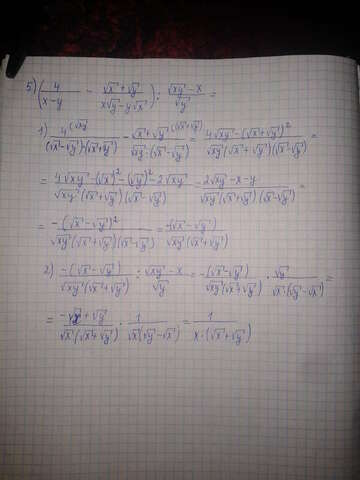 5) (4/(x-y) - (√x + √y)/(x√y - y√x)) : (√xy - x)/√y =
1) 4^(√xy)/((√x-√y)·(√x+√y)) - (√x+√y)^(√x+√y)/(√xy·(√x-√y)) = (4√xy - (√x+√y)²)/(√xy(√x+√y)(√x-√y)) =
= (4√xy - (√x)² - (√y)² - 2√xy)/(√xy(√x+√y)(√x-√y)) = (2√xy - x - y)/(√xy(√x+√y)(√x-√y)) =
= -(√x-√y)²/(√xy(√x+√y)(√x-√y)) = -(√x-√y)/(√xy(√x+√y))
2) -(√x-√y)/(√xy(√x+√y)) : (√xy - x)/√y = -(√x-√y)/(√xy(√x+√y)) · √y/(√x·(√y-√x)) =
= (-√x+√y)/(√x(√x+√y)) · 1/(√x(√y-√x)) = 1/(x·(√x+√y))